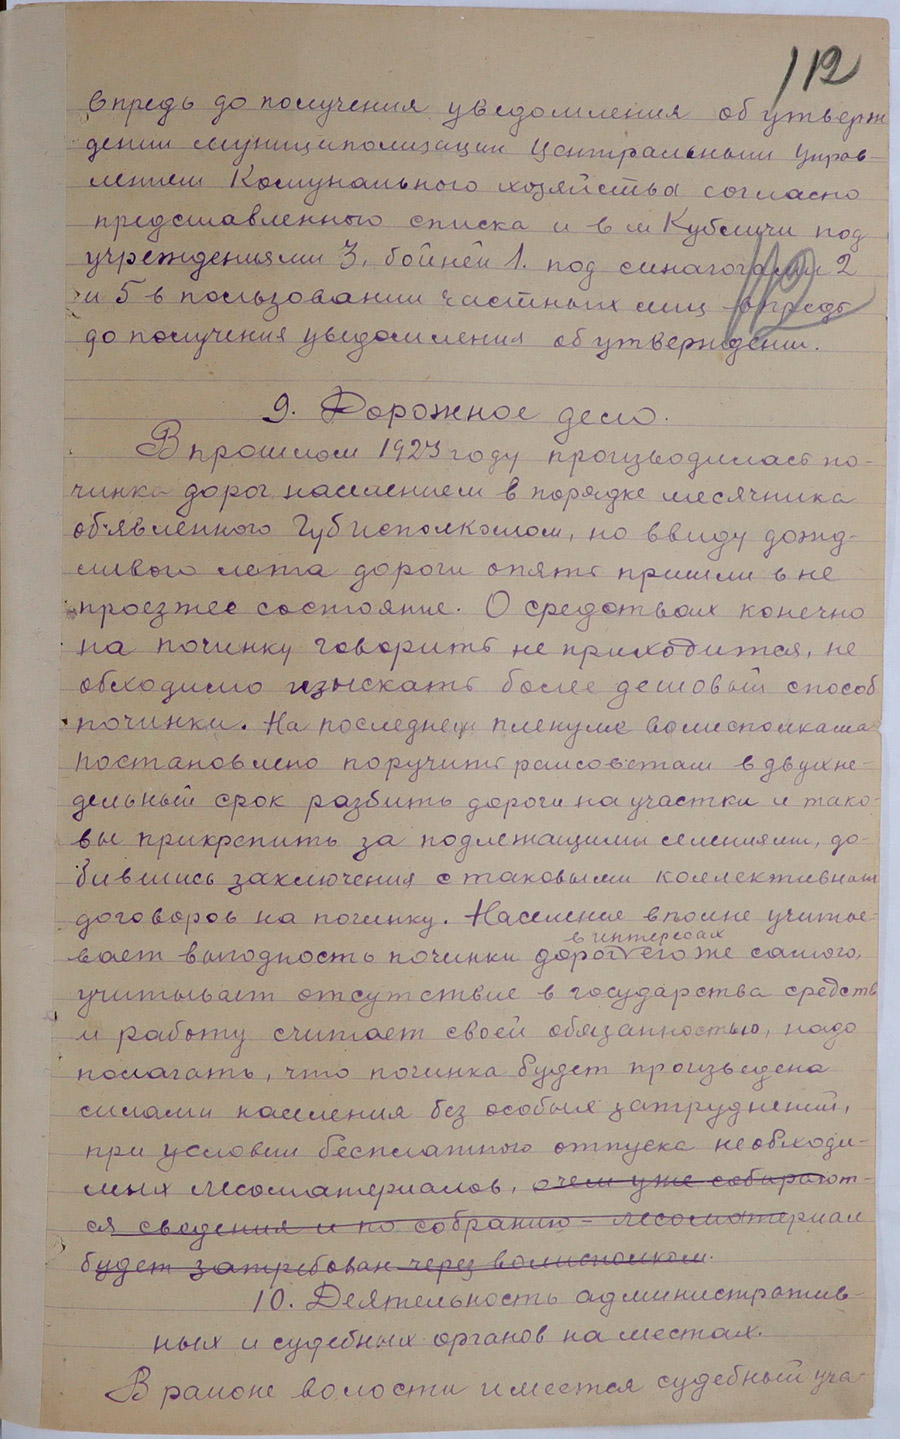 112
впредь до получения уведомления об утверж
дении муниципализации Центральным Управ-
лением Комунального хозяйства согласно
представленного списка и в м Кубличи под
учреждениями 3, бойней 1. под синагогами 2
и 5 в пользовании частных лиц впредь
до получения уведомления об утверждении.
9. Дорожное дело.
В прошлом 1923 году производилась по-
чинка дорог населением в порядке месячника
об'явленного Губисполкомом, но ввиду дожд-
ливого лета дороги опять пришли в не
проезжее состояние. О средствах конечно
на починку говорить не приходится, не
обходимо изыскать более дешовый способ
починки. На последнем пленуме волисполкома
постановлено поручить райсоветам в двухне-
дельный срок разбить дороги на участки и тако-
вые прикрепить за подлежащими селениями, до-
бившись заключения с таковыми коллективных
договоров на починку. Население вполне учиты-
в интересах
вает выгодность починки дорог его же самого,
учитывает отсутствие в государства средств
и работу считает своей обязанностью, надо
полагать, что починка будет произведена
силами населения без особых затруднений,
при условии бесплатного отпуска необходи-
мых лесоматериалов, о чем уже собирают-
ся сведения и по собранию - лесоматериал
будет затребован через волисполком.
10. Деятельность административ-
ных и судебных органов на местах.
В районе волости имеется судебный уча-